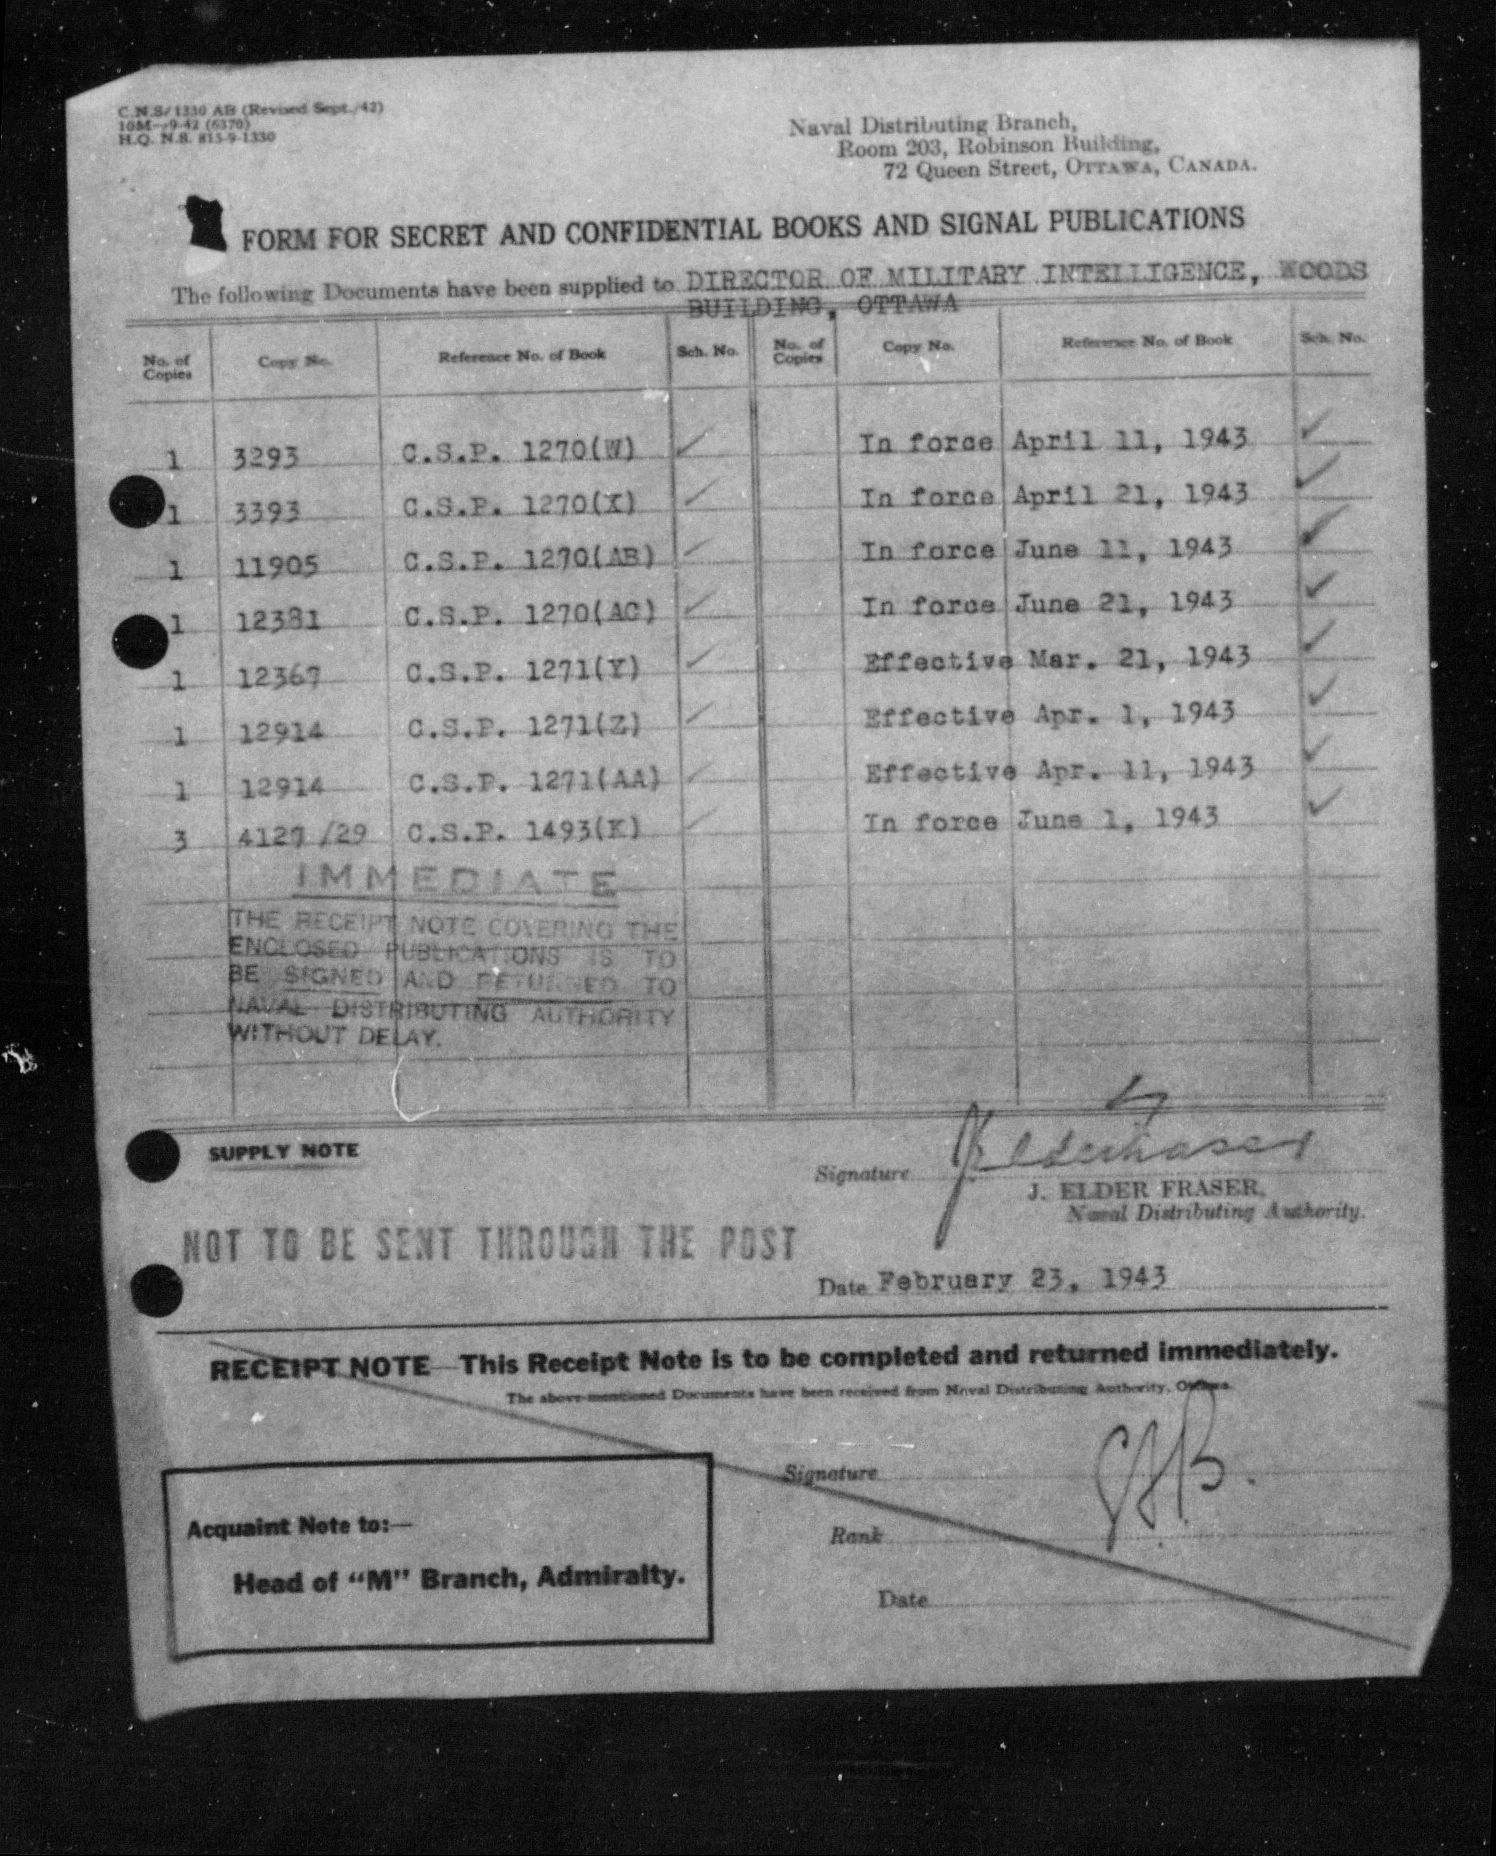 C.N.S/1330 AB (Revised Sept./42)
10M—9-42 (6370)
H.Q. N.S. 815-9-1330
Naval Distributing Branch,
Room 203, Robinson Building,
72 Queen Street, OTTAWA, CANADA.
FORM FOR SECRET AND CONFIDENTIAL BOOKS AND SIGNAL PUBLICATIONS
The following Documents have been supplied to DIRECTOR OF MILITARY INTELLIGENCE, WOODS
BUILDING, OTTAWA
No. of Copies Copy No. Reference No. of Book Sch. No. No. of Copies Copy No. Reference No. of Book Sch. No.
1 3293 C.S.P. 1270(W) ✓ In force April 11, 1943 ✓
1 3393 C.S.P. 1270(X) ✓ In force April 21, 1943 ✓
1 11905 C.S.P. 1270(AB) ✓ In force June 11, 1943 ✓
1 12381 C.S.P. 1270(AC) ✓ In force June 21, 1943 ✓
1 12367 C.S.P. 1271(Y) ✓ Effective Mar. 21, 1943 ✓
1 12914 C.S.P. 1271(Z) ✓ Effective Apr. 1, 1943 ✓
1 12914 C.S.P. 1271(AA) ✓ Effective Apr. 11, 1943 ✓
3 4127/29 C.S.P. 1493(K) ✓ In force June 1, 1943 ✓
IMMEDIATE
THE RECEIPT NOTE COVERING THE
ENCLOSED PUBLICATIONS IS TO
BE SIGNED AND RETURNED TO
NAVAL DISTRIBUTING AUTHORITY
WITHOUT DELAY.
SUPPLY NOTE
Signature J. Elder Fraser
J. ELDER FRASER,
Naval Distributing Authority.
NOT TO BE SENT THROUGH THE POST
Date February 23, 1943
RECEIPT NOTE—This Receipt Note is to be completed and returned immediately.
The above-mentioned Documents have been received from Naval Distributing Authority, Ottawa.
Signature
Acquaint Note to:—
Rank
Head of "M" Branch, Admiralty.
Date